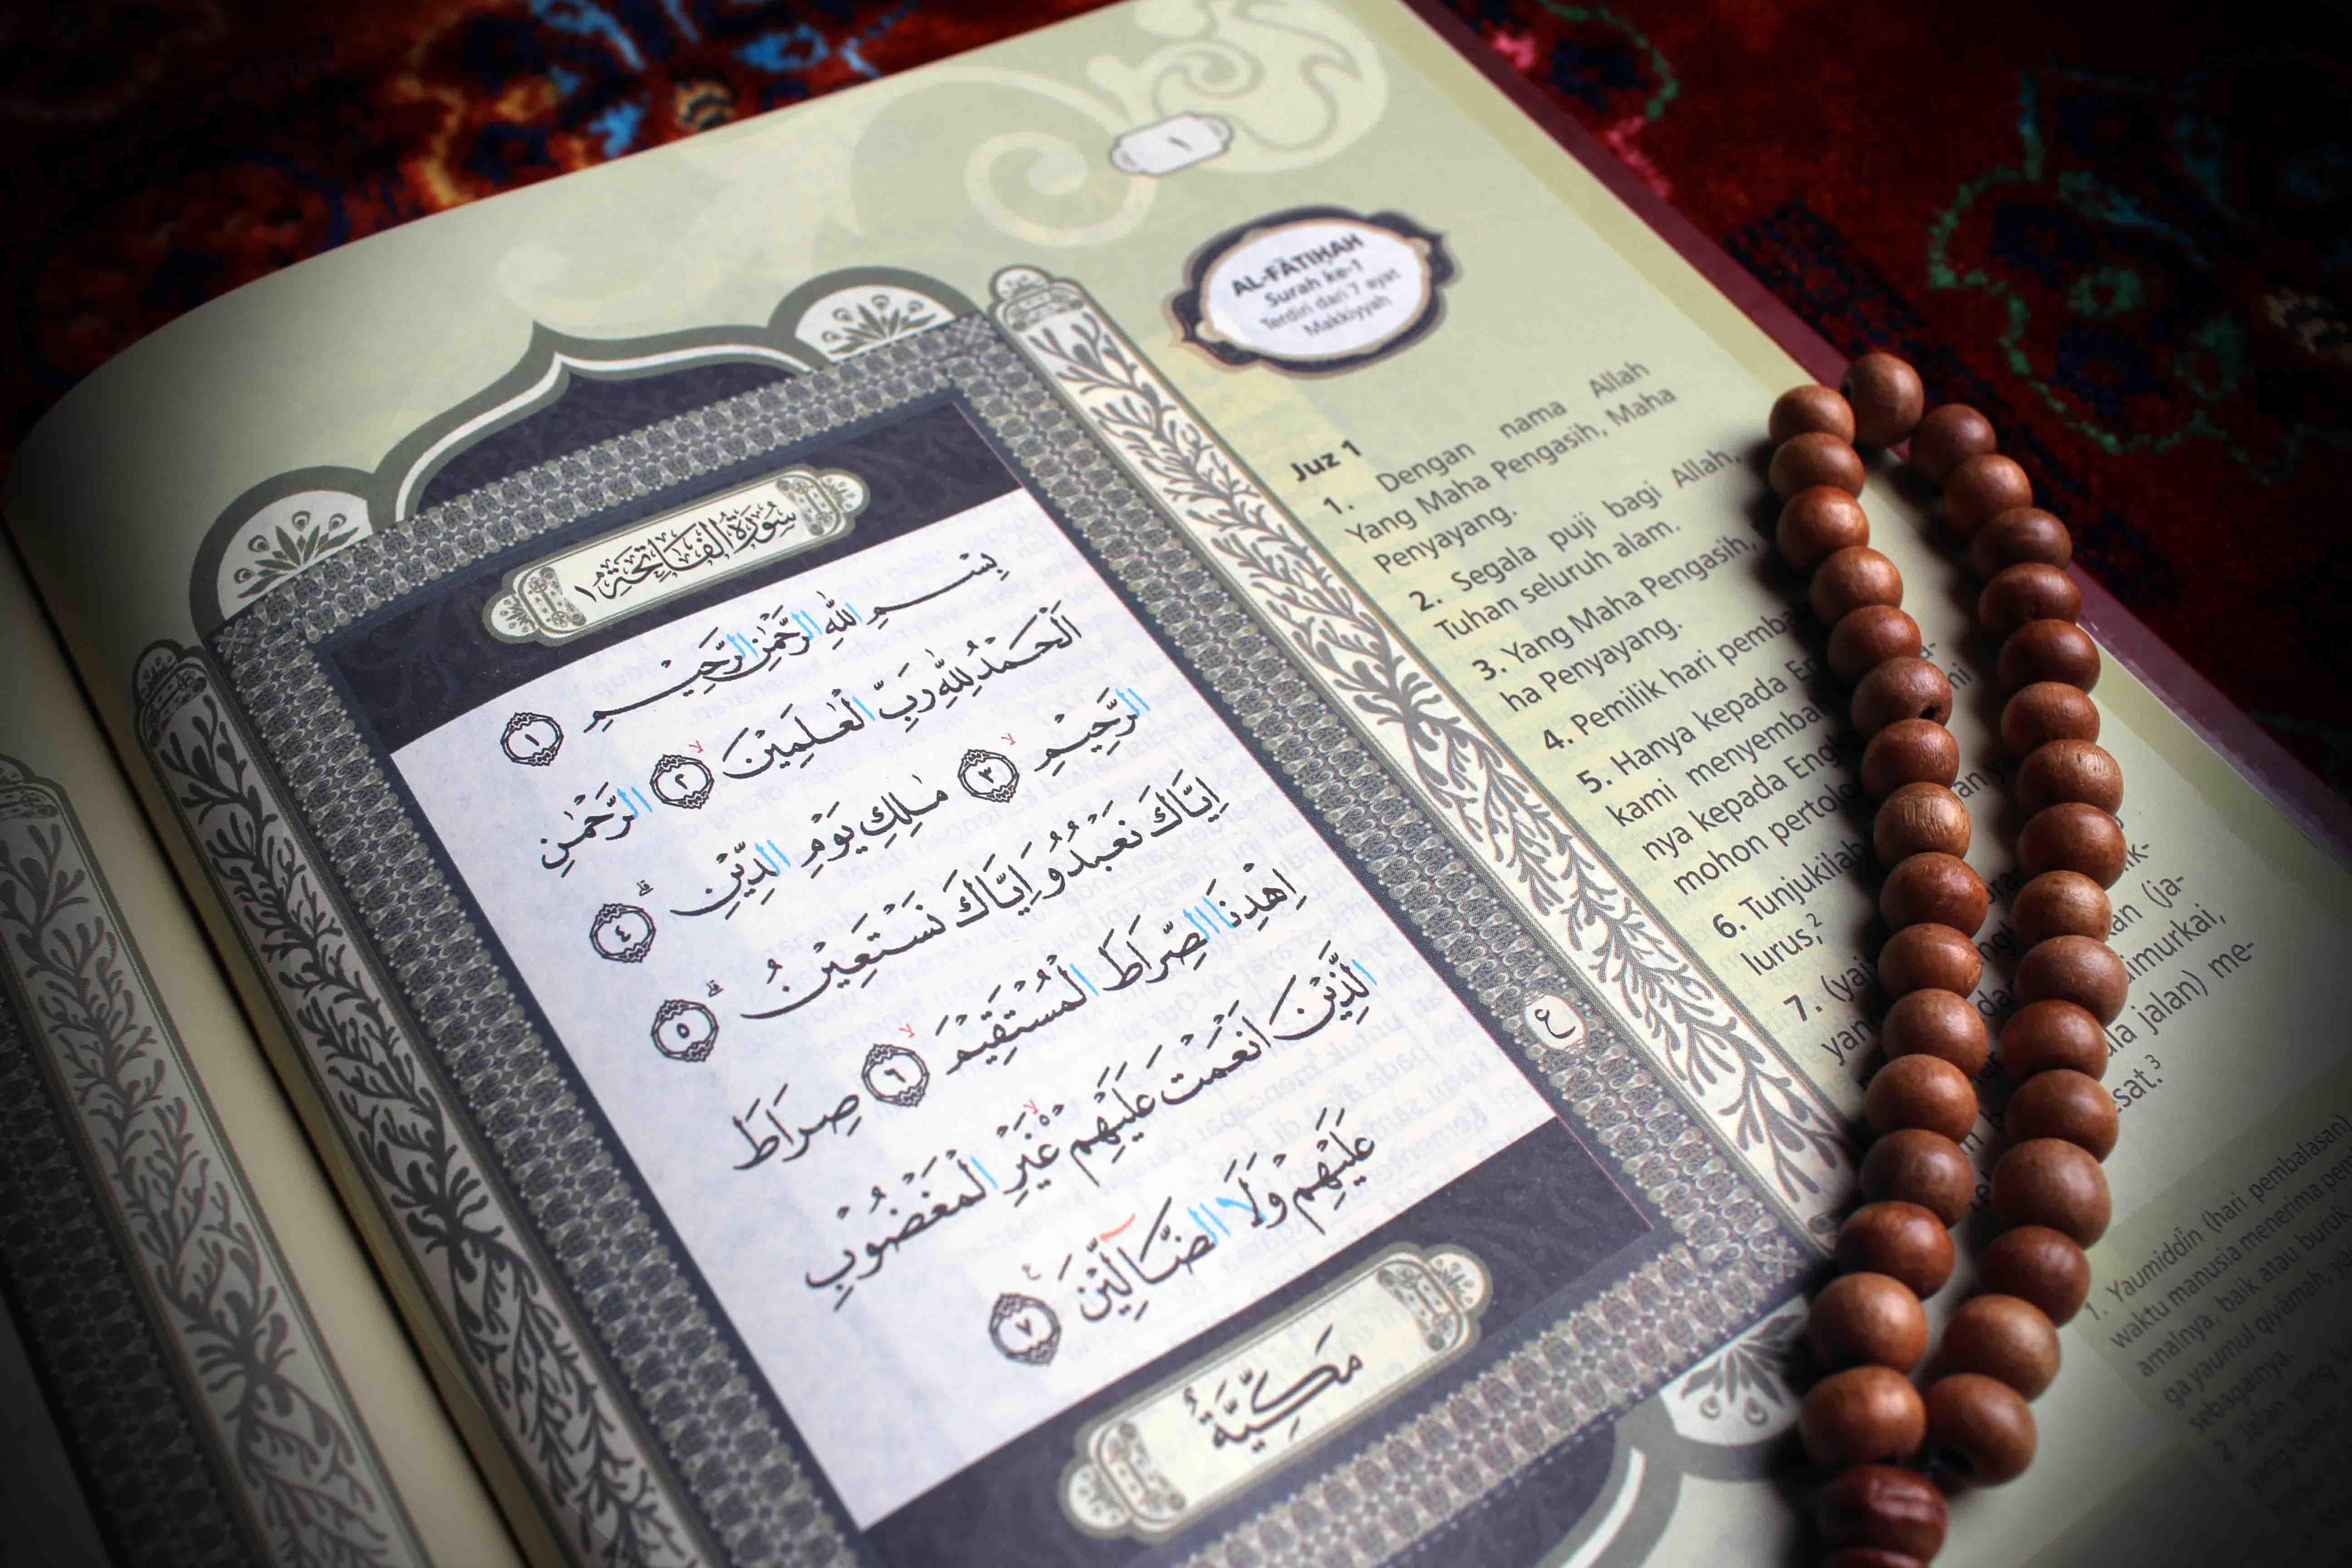 ١
AL-FĀTIḤAH
Surah ke-1
Terdiri dari 7 ayat
Makkiyyah
سُوْرَةُ الْفَاتِحَةِ ١
بِسْمِ اللّٰهِ الرَّحْمٰنِ الرَّحِيْمِ ١
اَلْحَمْدُ لِلّٰهِ رَبِّ الْعٰلَمِيْنَ ٢ الرَّحْمٰنِ
الرَّحِيْمِ ٣ مٰلِكِ يَوْمِ الدِّيْنِ ٤
اِيَّاكَ نَعْبُدُ وَاِيَّاكَ نَسْتَعِيْنُ ٥
اِهْدِنَا الصِّرَاطَ الْمُسْتَقِيْمَ ٦ صِرَاطَ
الَّذِيْنَ اَنْعَمْتَ عَلَيْهِمْ غَيْرِ الْمَغْضُوْبِ
عَلَيْهِمْ وَلَا الضَّاۤلِّيْنَ ٧
ع
مَكِّيَّةٌ
Juz 1
1. Dengan nama Allah
Yang Maha Pengasih, Maha
Penyayang.
2. Segala puji bagi Allah,
Tuhan seluruh alam.
3. Yang Maha Pengasih,
ha Penyayang.
4. Pemilik hari
5. Hanya kepada
kami
nya kepada
mohon
6. Tunjukilah
lurus,²
7.
jalan) me-
1. Yaumiddīn (hari pembalasan)
waktu manusia menerima
amalnya, baik atau
ga yaumul qiyāmah,
sebagainya.